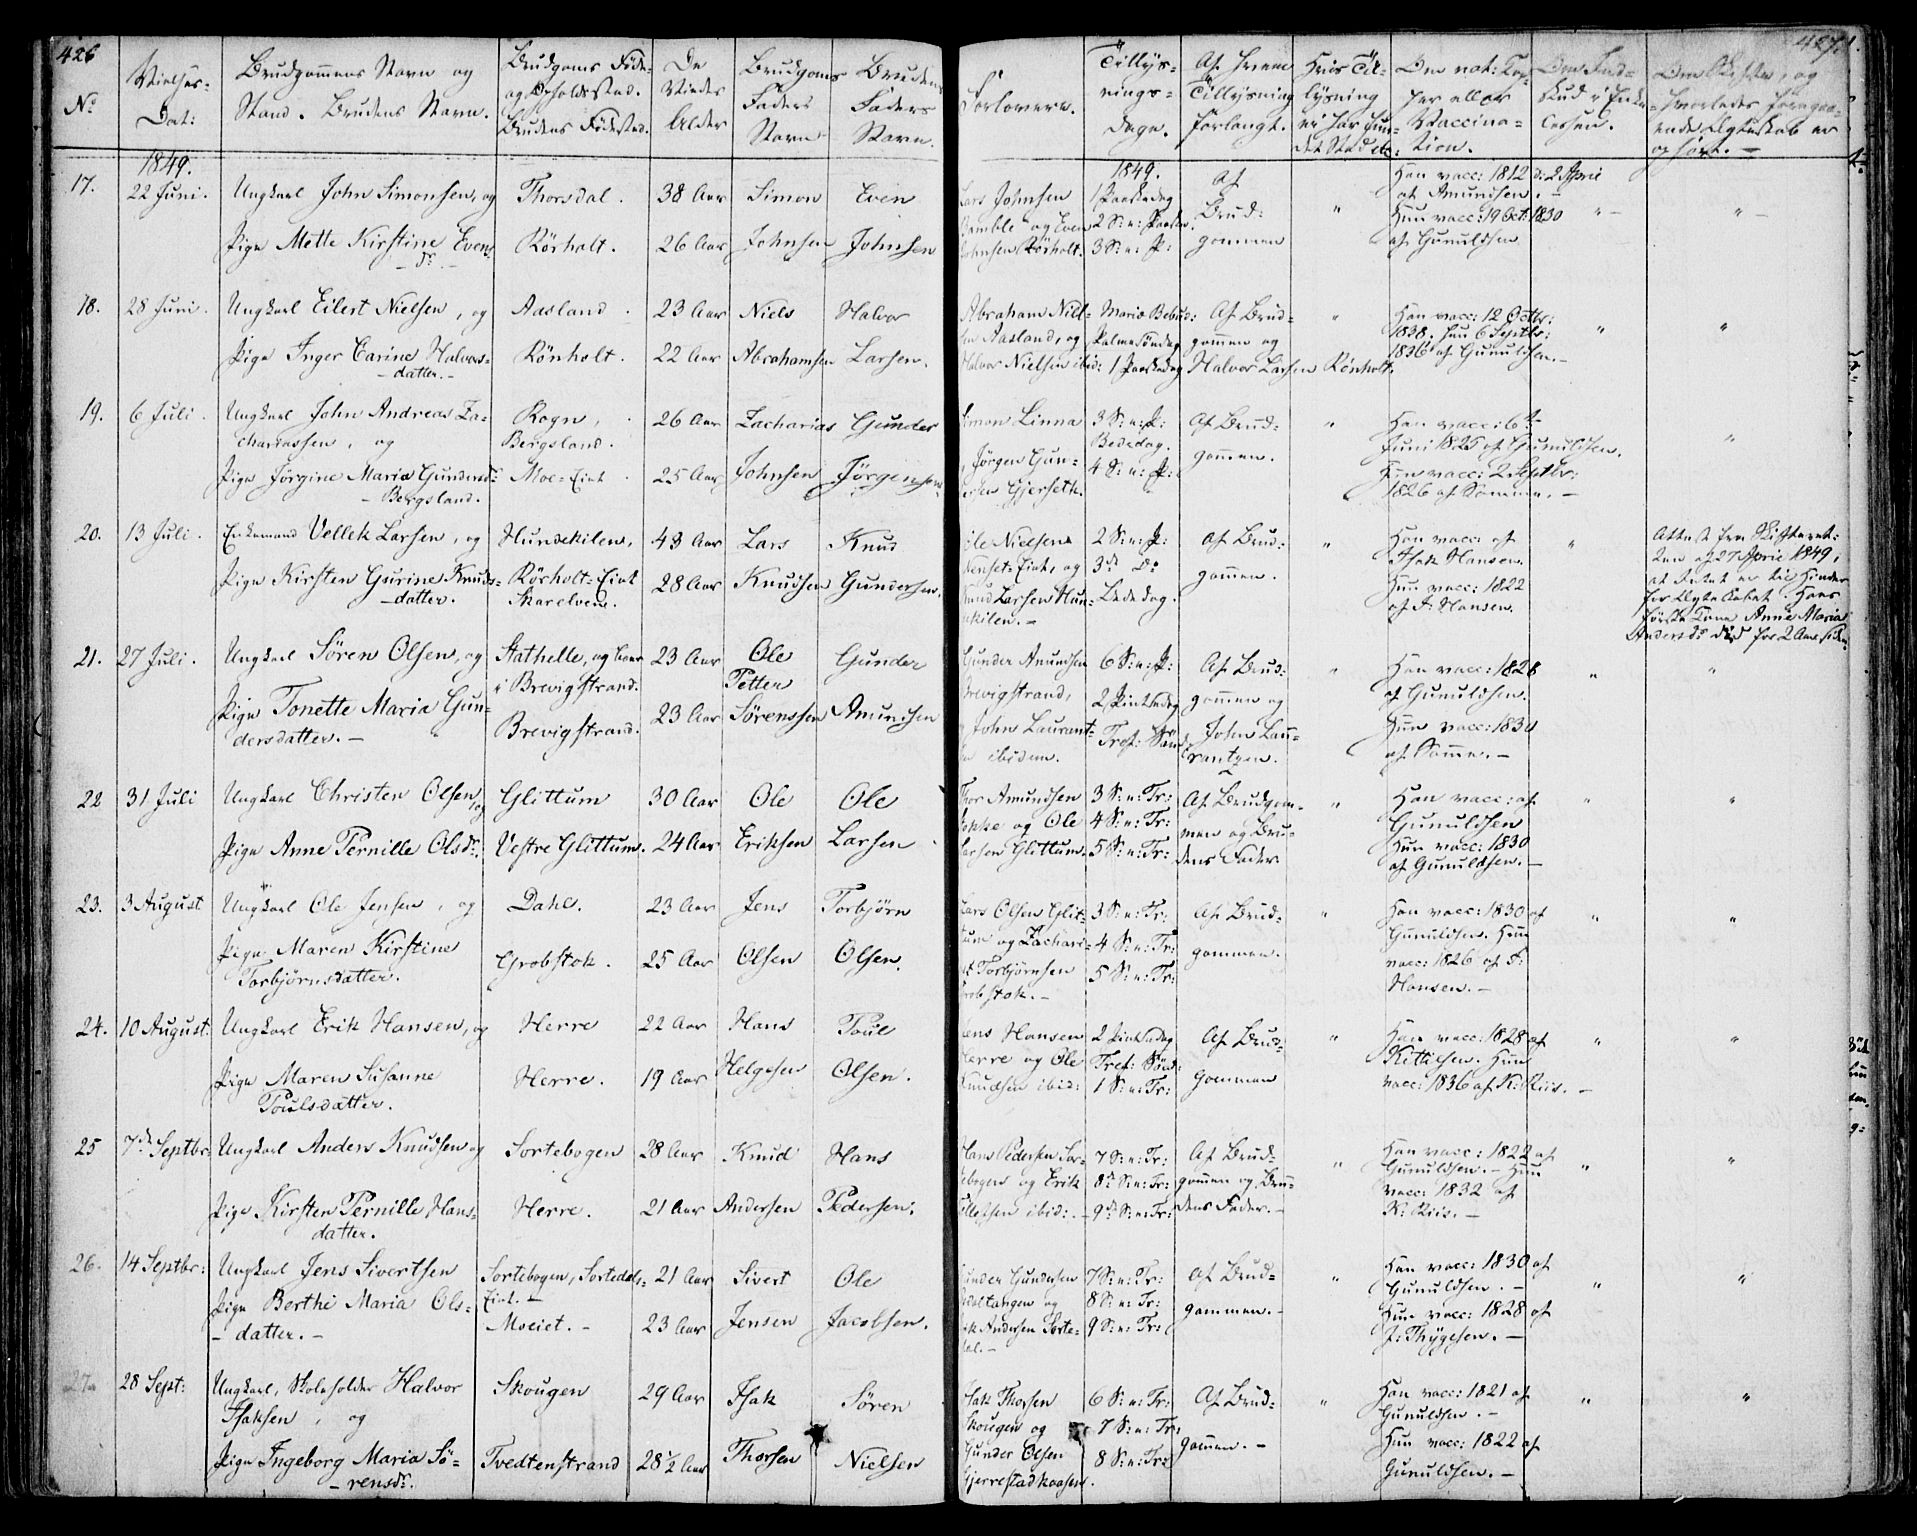 426
No
Vielses-
Dat:
Brudgommens Navn og
Stand. Brudens Navn.
Brudgoms Føde-
og Opholdssted.
Brudens Fødested.
De
Viedes
Alder
Brudgoms
Faders
Navn
Brudens
Faders
Navn.
1849.
17.
22 Juni.
Ungkarl John Simonsen, og
Pige Mette Kirstine Evens
dr.
Thorsdal.
Rörholt.
38 Aar
26 Aar
Simon
Johnsen
Even
Johnsen
18.
28 Juni.
Ungkarl Eilert Nielsen, og
Pige Inger Carine Halvors-
datter.
Aasland
Rönholt.
23 Aar
22 Aar
Niels
Abrahamsen
Halvor
Larsen.
19.
6 Juli.
Ungkarl John Andreas Za-
chariassen, og
Pige Jørgine Maria Gundersdr
Bergsland.
Rogn,
Bergsland.
Moe-Eiet
26 Aar
25 Aar
Zacharias
Johnsen
Gunder
Jörgensen
20.
13 Juli.
Enkemand Vellek Larsen, og
Pige Kirsten Gurine Knuds-
datter.
Hundekilen,
Rörholt-Eiet
Skarelvene.
43 Aar
28 Aar
Lars
Knudsen
Knud
Gundersen.
21.
27 Juli.
Ungkarl Søren Olsen, og
Pige Tonette Maria Gun-
dersdatter.
Stathelle, og boer
i Brevigstrand.
Brevigstrand.
23 Aar
23 Aar
Ole
Petter
Sørenssen
Gunder
Amundsen
22
31 Juli
Ungkarl Christen Olsen, og
Pige Anne Pernille Olsdr.
Glittum
Vestre Glittum.
30 Aar
24 Aar
Ole
Eriksen
Ole
Larsen
23.
3 August
Ungkarl Ole Jensen, og
Pige Maren Kirstine
Torbjørnsdatter.
Dahl.
Grobstok.
23 Aar
25 Aar
Jens
Olsen
Torbjörn
Olsen.
24.
10 August:
Ungkarl Erik Hansen, og
Pige Maren Susanne
Poulsdatter.
Herre
Herre.
22 Aar
19 Aar
Hans
Helgesen
Poul
Olsen.
25
7de Septbr:
Ungkarl Anders Knudsen og
Pige Kirsten Pernille Hans-
datter.
Sortebogen
Herre.
28 Aar
21 Aar
Knud
Andersen
Hans
Pedersen.
26.
14 Septbr:
Ungkarl Jens Sivertsen
Pige Berthe Maria Ols-
datter.
Sortebogen, Sortedals-
Eiet.
Moeiet.
21 Aar
23 Aar
Sivert
Jensen
Ole
Jacobsen.
27.
28 Sept:
Ungkarl, Skoleholder Halvor
Isaksen, og
Pige Ingeborg Maria Sö-
rensdr.
Skougen
Tvedtenstrand
29 Aar
28 1/2 Aar
Isak
Thorsen
Søren
Nielsen
427.
Forlovere.
Tillys-
nings-
Dage.
Af hvem
Tillysning
forlangt.
Hvis Til-
lysning
ei har fun-
det Sted
Om nat: Kop-
per eller
Vaccina-
tion.
Om Ind-
bud
Om Skifte, og
hvorledes foregaa-
ende Ægteskab er
ophørt.
1849.
Lars Johnsen
Bamble og Even
Johnsen Rörholt.
1 Paaskedag
2 S: e: Paaske.
3 S: e: P:
Af
Brud-
gommen
Han vacc: 1812 d: 2 Aprie
af Amundsen.
Hun vacc: 19 Oct: 1830
af Gunuldsen
Abraham Niel-
sen Aasland, og
Halvor Nielsen ibid:
Mariæ Bebud:
Palmesöndag
1 Paaskedag
Af Brud-
gommen og
Halvor Larsen Rönholt.
Han vacc: 12 Octbr:
1838, hun 6 Septbr:
1836 af Gunuldsen.
Simon Linna
Jörgen Gun-
dersen Gjerseth.
3 S: e: P:
Bededag.
4 S: e: P:
Af Brud-
gommen.
Han vacc: 6te
Juni 1825 af Gunuldsen.
Hun vacc: 2 Septbr:
1826 af Somme.
Ole Nielsen
og
Knud Larsen Hun-
dekilen.
2 S: e: P:
3de Do
Bededag.
Af Brud-
gommen.
Han vacc: af
Isak Hansen.
Hun vacc: 1822
af I: Hansen.
Attest fra Skifteret-
ten af 27 Aprie 1849,
at Intet er til Hinder
for Ægteskabet. Hans
første Kone Anne Maria
Andersdr død for 2 Aar siden
Gunder Amundsen
Brevigstrand,
og John Laurant-
zen ibidem.
6 S: e: P:
2 Pintsedag
Tref: Sönd
Af Brud-
gommen og
John Lau-
rantzen.
Han vacc: 1828
af Gunuldsen.
Hun vacc: 1834
af Somme.
Thor Amundsen
og Ole
Larsen Glittum.
3 S: e: Tr:
4 S: e: Tr:
5 S: e: Tr:
Af Brudgom-
men og Bru-
dens Fader
Han vacc: af
Gunuldsen
Hun vacc: 1830
af Gunuldsen.
Lars Olsen Glit-
tum og Zachari-
as Torbjørnsen
Grobstok.
3 S: e: Tr:
4 S: e: Tr:
5 S: e: Tr:
Af Brud-
gommen.
Han vacc: 1830 af
Gunuldsen. Hun
vacc: 1826 af I:
Hansen.
Jens Hansen
Herre og Ole
Knudsen ibid:
2 Pintsedag
Tref: Sönd:
1 S: e: Tr:
Af Brud-
gommen
Han vacc: 1828 af
Kittilsen. Hun
vacc: 1836 af K: Riis.
Hans Pedersen Sor-
tebogen og Erik
ibid:
7 S: e: Tr:
8de S: e: Tr:
9de S: e: Tr:
Af Brud-
gommen og Bru-
dens Fader.
Han vacc: 1822 af
Gunuldsen. Hun
vacc: 1832 af
K: Riis.
Gunder Gundersen
og
Erik Andersen Sorte-
dal.
7 S: e: Tr:
8 S: e: Tr:
9 S: e: Tr:
Af Brud-
gommen.
Han vacc: 1830 af
Gunuldsen.
Hun vacc: 1828 af
J: Thygesen.
Isak Thorsen
Skougen og
Gunder Olsen
Gjerrestadkaasen.
6 S: e: Tr:
7 S: e: Tr:
8 S: e: Tr:
Af Brud-
gommen.
Han vacc: 1821 af
Gunuldsen.
Hun vacc: 1822 af
Gunuldsen.